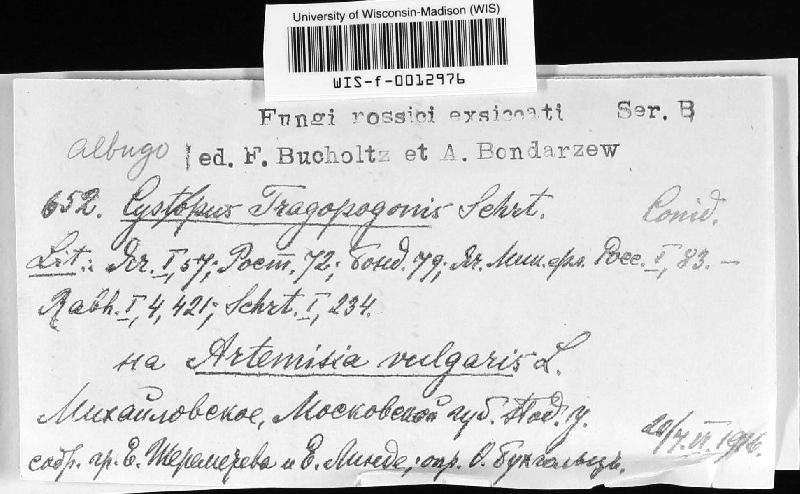 University of Wisconsin-Madison (WIS)
WIS-f-0012976
Fungi rossici exsiccati Ser. B
Albugo ed. F. Bucholtz et A. Bondarzew
652. Cystopus Tragopogonis Schrt. Conid.
Lit.: Яч. I, 57; Рост. 72; Бонд. 79; Яч. Мик. фл. Росс. I, 83. —
Rabh. I, 4, 421; Schrt. I, 234.
на Artemisia vulgaris L.
Михайловское, Московской губ. Под. у.
собр. гр. Е. Шереметева и Е. Линде; опр. Ѳ. Бухгольцъ. 1916.